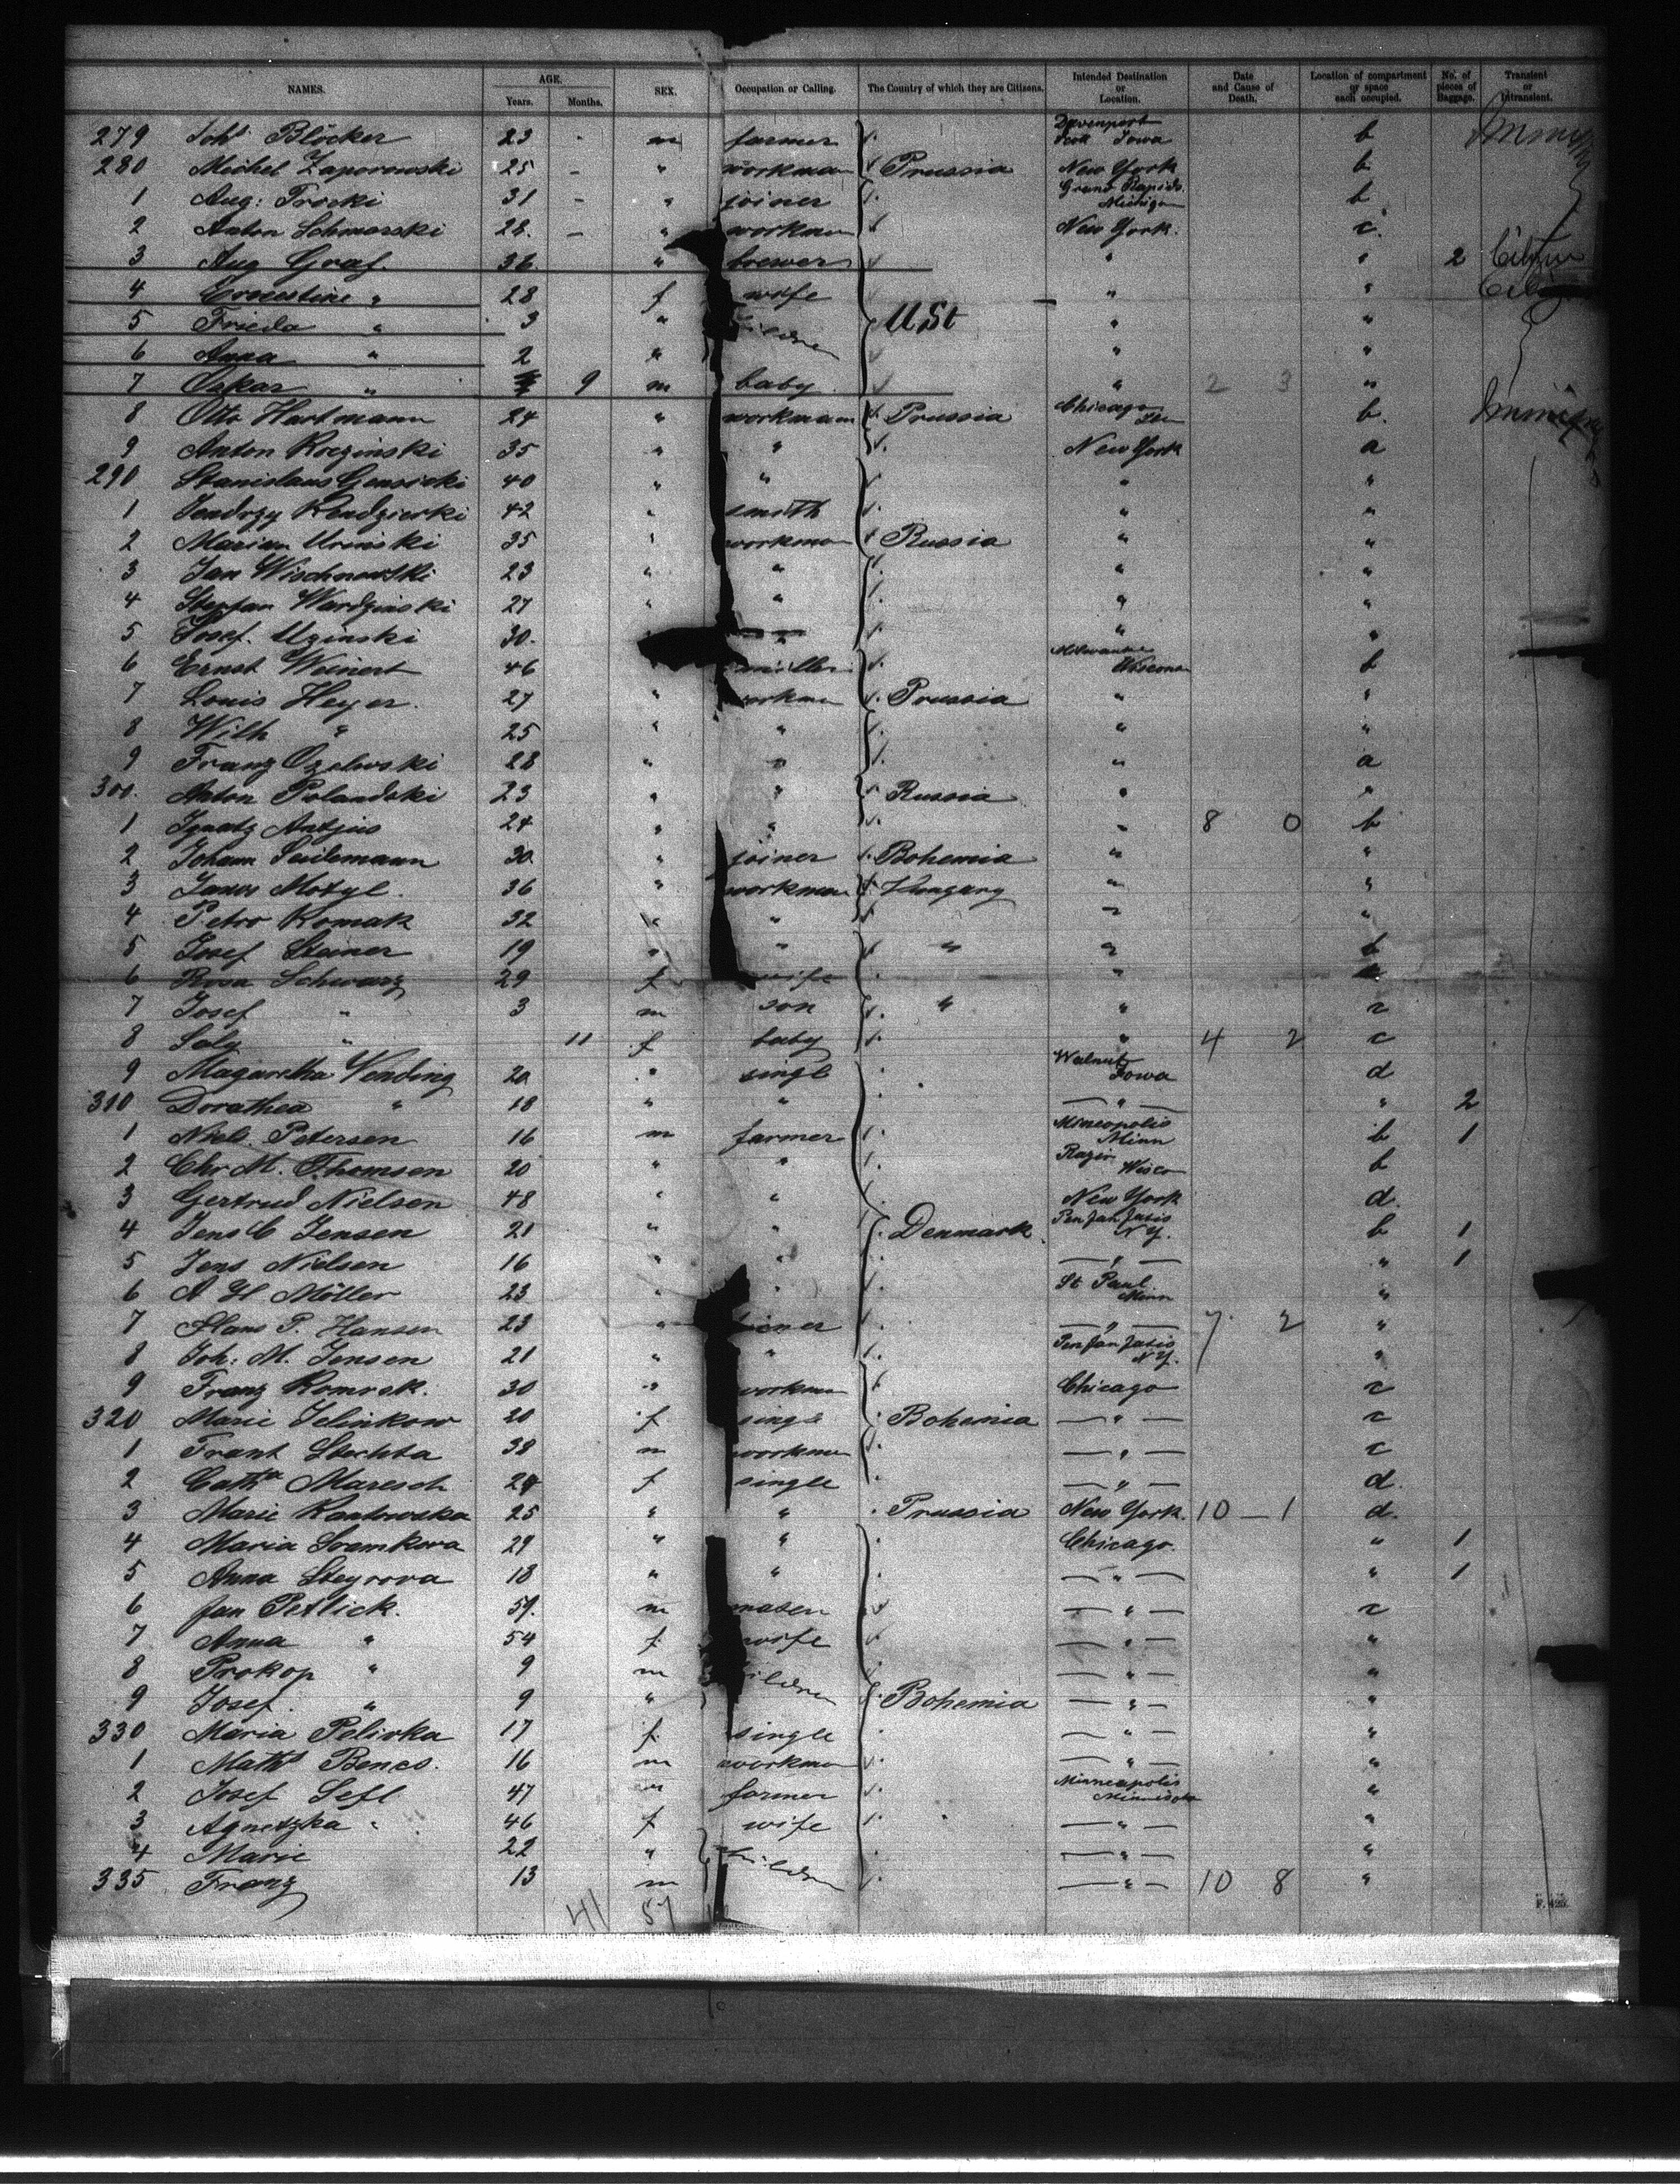 NAMES. AGE. Years. Months. SEX. Occupation or Calling. The Country of which they are Citizens. Intended Destination or Location. Date and Cause of Death. Location of compartment or space each occupied. No. of pieces of Baggage. Transient or Intransient.
279 Joh Blöcker 23 - m farmer Davenport Scott Iowa b
280 Michel Zaporowski 25 - " workman Prussia New York b
1 Aug: Troski 31 - " joiner Grand Rapids Michigan b
2 Anton Schmarski 28. - " workman New York. c.
3 Aug Graf. 36. " brewer " " 2 Citizen
4 Ernestine " 28 f wife " "
5 Frieda " 3 " U St " "
6 Anna " 2 " " "
7 Oskar " 9 m baby " 2 3 "
8 Otto Hartmann 24 " workmann Prussia Chicago b.
9 Anton Kozginski 35 " " New York a
290 Stanislaus Gensicki 40 " " " "
1 Jendrzy Kendzierki 42 " smith " "
2 Marian Urinski 35 " workman Russia " "
3 Jan Wischnowski 23 " " " "
4 Stephan Wardzinski 27 " " " "
5 Josef. Uzinski 30. " " "
6 Ernst Weinert 46 miller Milwaukee Wisconsin b
7 Louis Heyer. 27 " workman Prussia " "
8 Wilh " 25 " " " "
9 Franz Ozelwski 28 " " " a
300. Anton Polandski 23 " " Russia " "
1 Ignatz Antzius 24 " " " 8 0 b
2 Johann Seidemann 30. " joiner Bohemia " "
3 Janos Motyl. 36 " workman Hungary " "
4 Petro Komak 32 " " " "
5 Josef Steiner 19 " " " " b
6 Rosa Schwarz 29 f wife "
7 Josef " 3 m son " " c
8 Saly " 11 f baby " 4 2 c
9 Magaretha Wending 20 " single Walnut Iowa d
310 Dorathea " 18 " " " " 2
1 Niels. Petersen 16 m farmer Minneopolis Minn b 1
2 Chr M. Thomsen 20 " " Wisco b
3 Gertrud Nielsen 48 " " New York d.
4 Jens C Jensen 21 " " Denmark. N Y. b 1
5 Jens Nielsen 16 " " " " 1
6 A H Möller 23 " " St Paul Minn "
7 Hans P. Hansen 23 " " 7 2 "
8 Joh: M. Jensen 21 " " N Y. "
9 Franz Komrsk. 30 " workman Chicago c
320 Marie Jelinkow 20 f single Bohemia " c
1 Frant Stechta 38 m workman " c
2 Cath Maresch 24 f single " d.
3 Marie Kantowska 25 " " Prussia New York. 10 - 1 d.
4 Maria Sramkova 29 " " Chicago. " 1
5 Anna Steyrova 18 " " " " 1
6 Jan Petlick. 59. m " c
7 Anna " 54 f wife " "
8 Prokop " 9 m children " "
9 Josef. " 9 " Bohemia " "
330 Maria Polivka 17 f single " "
1 Math Benes. 16 m workman " "
2 Josef Sefl 47 m farmer Minneapolis Minnesota "
3 Agnetzka " 46 f wife " "
4 Marie 22 " children " "
335 Franz 13 m " 10 8 "
41 57